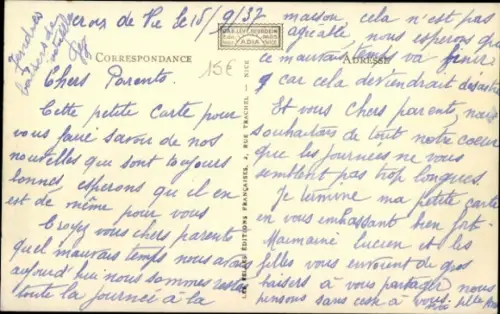 Croix de Vie le 15/9/37
Tendres
baisers de
CORRESPONDANCE
15€
Chers Parents.
Cette petite carte pour
vous faire savoir de nos
nouvelles qui sont toujours
bonnes, esperons qu'il en
est de même pour vous
Croyez vous chers parents
quel mauvais temps nous avons
aujourd'hui nous sommes restés
toute la journée à la
LES BELLES ÉDITIONS FRANÇAISES, 2, RUE TRACHEL - NICE
ADRESSE
maison, cela n'est pas
agréable nous esperons que
ce mauvais temps va finir
car cela deviendrait désastre
Et vous chers parents, nous
souhaitons de tout notre coeur
que les journées ne vous
semblent pas trop longues.
Je termine ma petite carte
en vous embrassant bien fort.
Lucien et les
filles vous envoient de gros
baisers à vous partager nous
pensons sans cesse à vous.